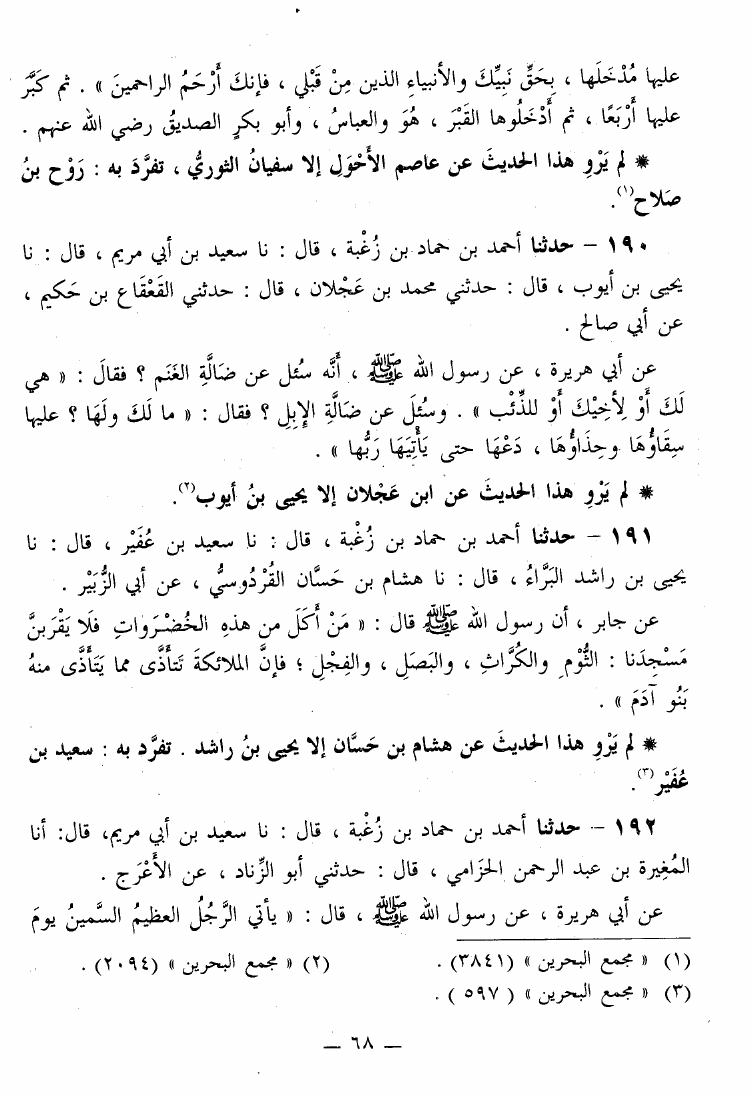 عليها مُدْخَلَها ، بِحَقِّ نَبِيِّكَ والأنبياءِ الذين مِنْ قَبْلي ، فإنكَ أَرْحَمُ الراحمينَ » . ثم كَبَّرَ
عليها أَرْبَعًا ، ثم أَدْخَلُوها القَبْرَ ، هُوَ والعباسُ ، وأبو بكرٍ الصديقُ رضي الله عنهم .
* لم يَرْوِ هذا الحديثَ عن عاصم الأَحْوَلِ إلا سفيانُ الثوريُّ ، تفرَّدَ به : رَوْح بنُ
صَلاح(١).
١٩٠ – حدثنا أحمد بن حماد بن زُغْبة ، قال : نا سعيد بن أبي مريم ، قال : نا
يحيى بن أيوب ، قال : حدثني محمد بن عَجْلان ، قال : حدثني القَعْقَاع بن حَكيم ،
عن أبي صالح .
عن أبي هريرة ، عن رسول الله ﷺ ، أَنَّه سُئل عن ضَالَّةِ الغَنَم ؟ فقالَ : « هي
لَكَ أَوْ لِأَخِيْكَ أَوْ للذِّئْب » . وسُئلَ عن ضَالَّةِ الإِبلِ ؟ فقال : « ما لَكَ ولَهَا ؟ عليها
سِقَاؤُهَا وحِذَاؤُهَا ، دَعْهَا حتى يَأْتِيَهَا رَبُّها » .
* لم يَرْوِ هذا الحديثَ عن ابن عَجْلان إلا يحيى بنُ أيوب(٢).
١٩١ – حدثنا أحمد بن حماد بن زُغْبة ، قال : نا سعيد بن عُفَيْر ، قال : نا
يحيى بن راشد البَرَّاءُ ، قال : نا هشام بن حَسَّان القُرْدُوسيُّ ، عن أبي الزُّبَيْر .
عن جابر ، أن رسول الله ﷺ قال : « مَنْ أَكَلَ من هذهِ الخُضْرَواتِ فلَا يَقْرَبنَّ
مَسْجِدَنا : الثُّوْمِ والكُرَّاثِ ، والبَصَلِ ، والفِجْلِ ؛ فإنَّ الملائكةَ تَتأَذَّى مما يَتَأَذَّى منهُ
بَنُو آدَمَ » .
* لم يَرْوِ هذا الحديثَ عن هشام بن حَسَّان إلا يحيى بنُ راشد . تفرَّد به : سعيد بن
عُفَيْر(٣).
١٩٢ – حدثنا أحمد بن حماد بن زُغْبة ، قال : نا سعيد بن أبي مريم، قال: أنا
المُغِيرة بن عبد الرحمن الحِزامي ، قال : حدثني أبو الزِّناد ، عن الأَعْرَج .
عن أبي هريرة ، عن رسول الله ﷺ ، قال : « يأتي الرَّجُلُ العظيمُ السَّمينُ يومَ
(١) « مجمع البحرين » (٣٨٤١) . (٢) « مجمع البحرين » (٢٠٩٤) .
(٣) « مجمع البحرين » ( ٥٩٧ ) .
— ٦٨ —